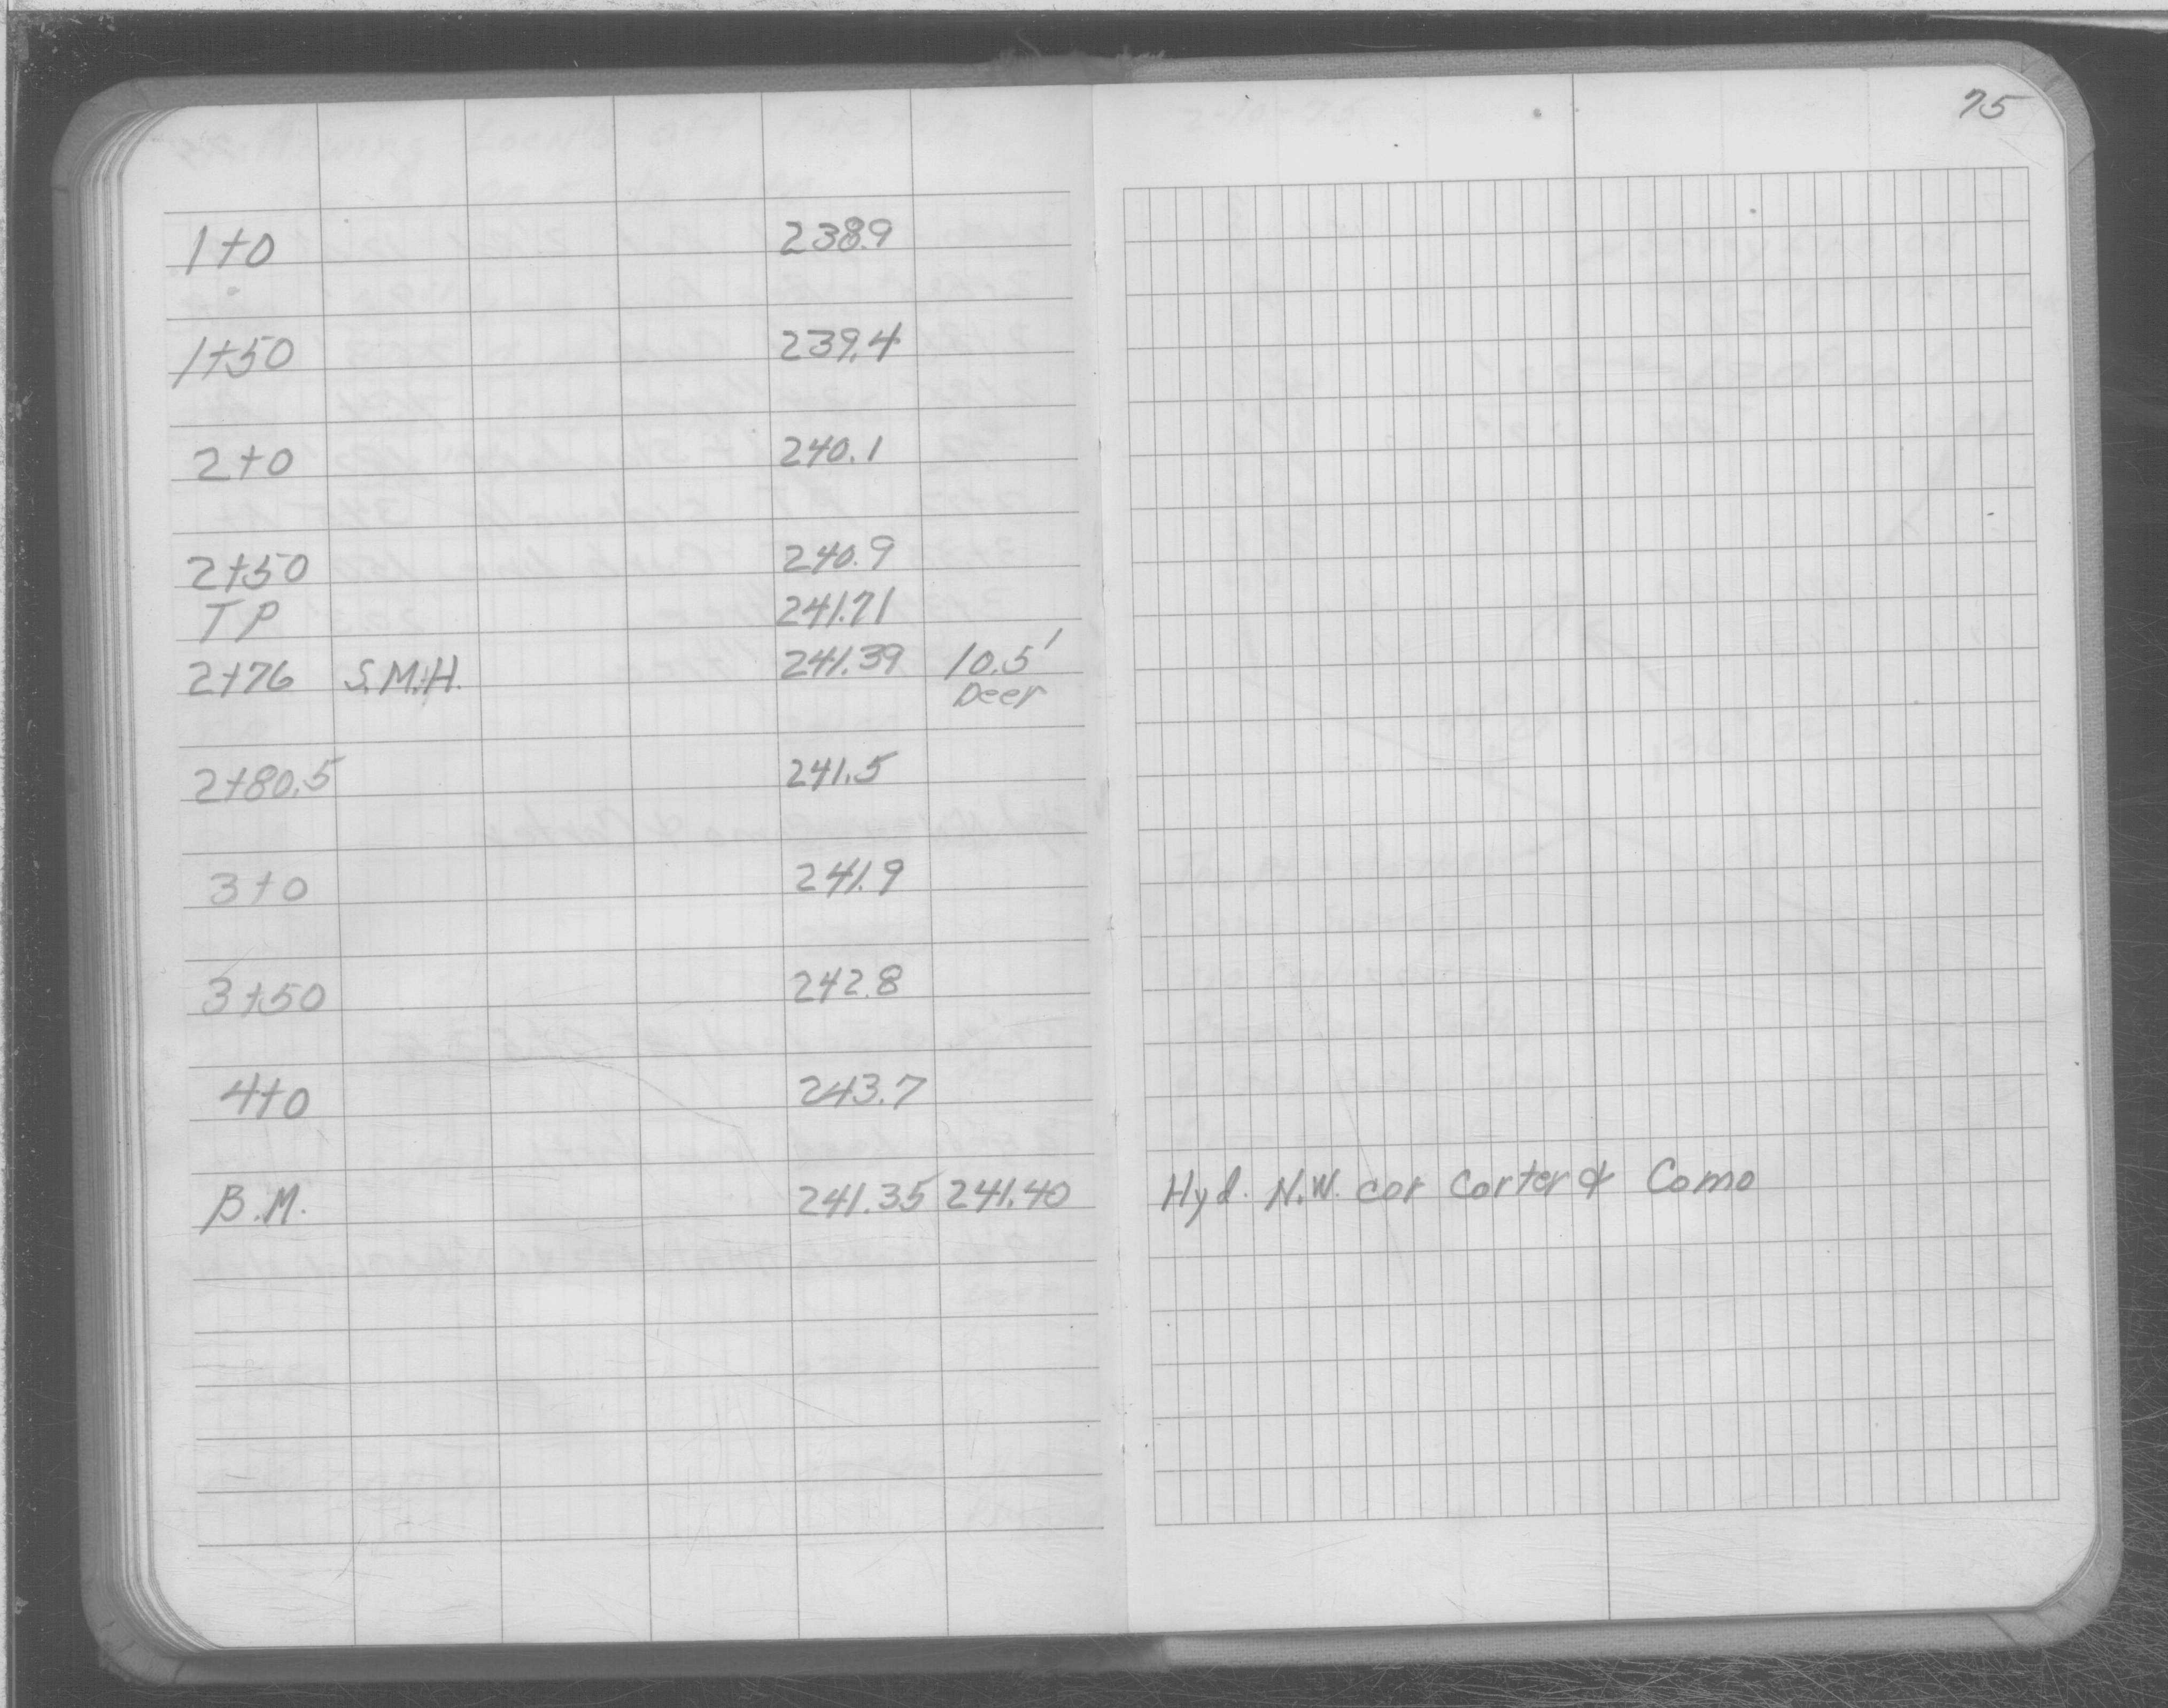 75
1+0 238.9
1+50 239.4
2+0 240.1
2+50 240.9
TP 241.71
2+76 S.M.H. 241.39 10.5'
Deep
2+80.5 241.5
3+0 241.9
3+50 242.8
4+0 243.7
B.M. 241.35 241.40 Hyd. N.W. cor Carter & Como